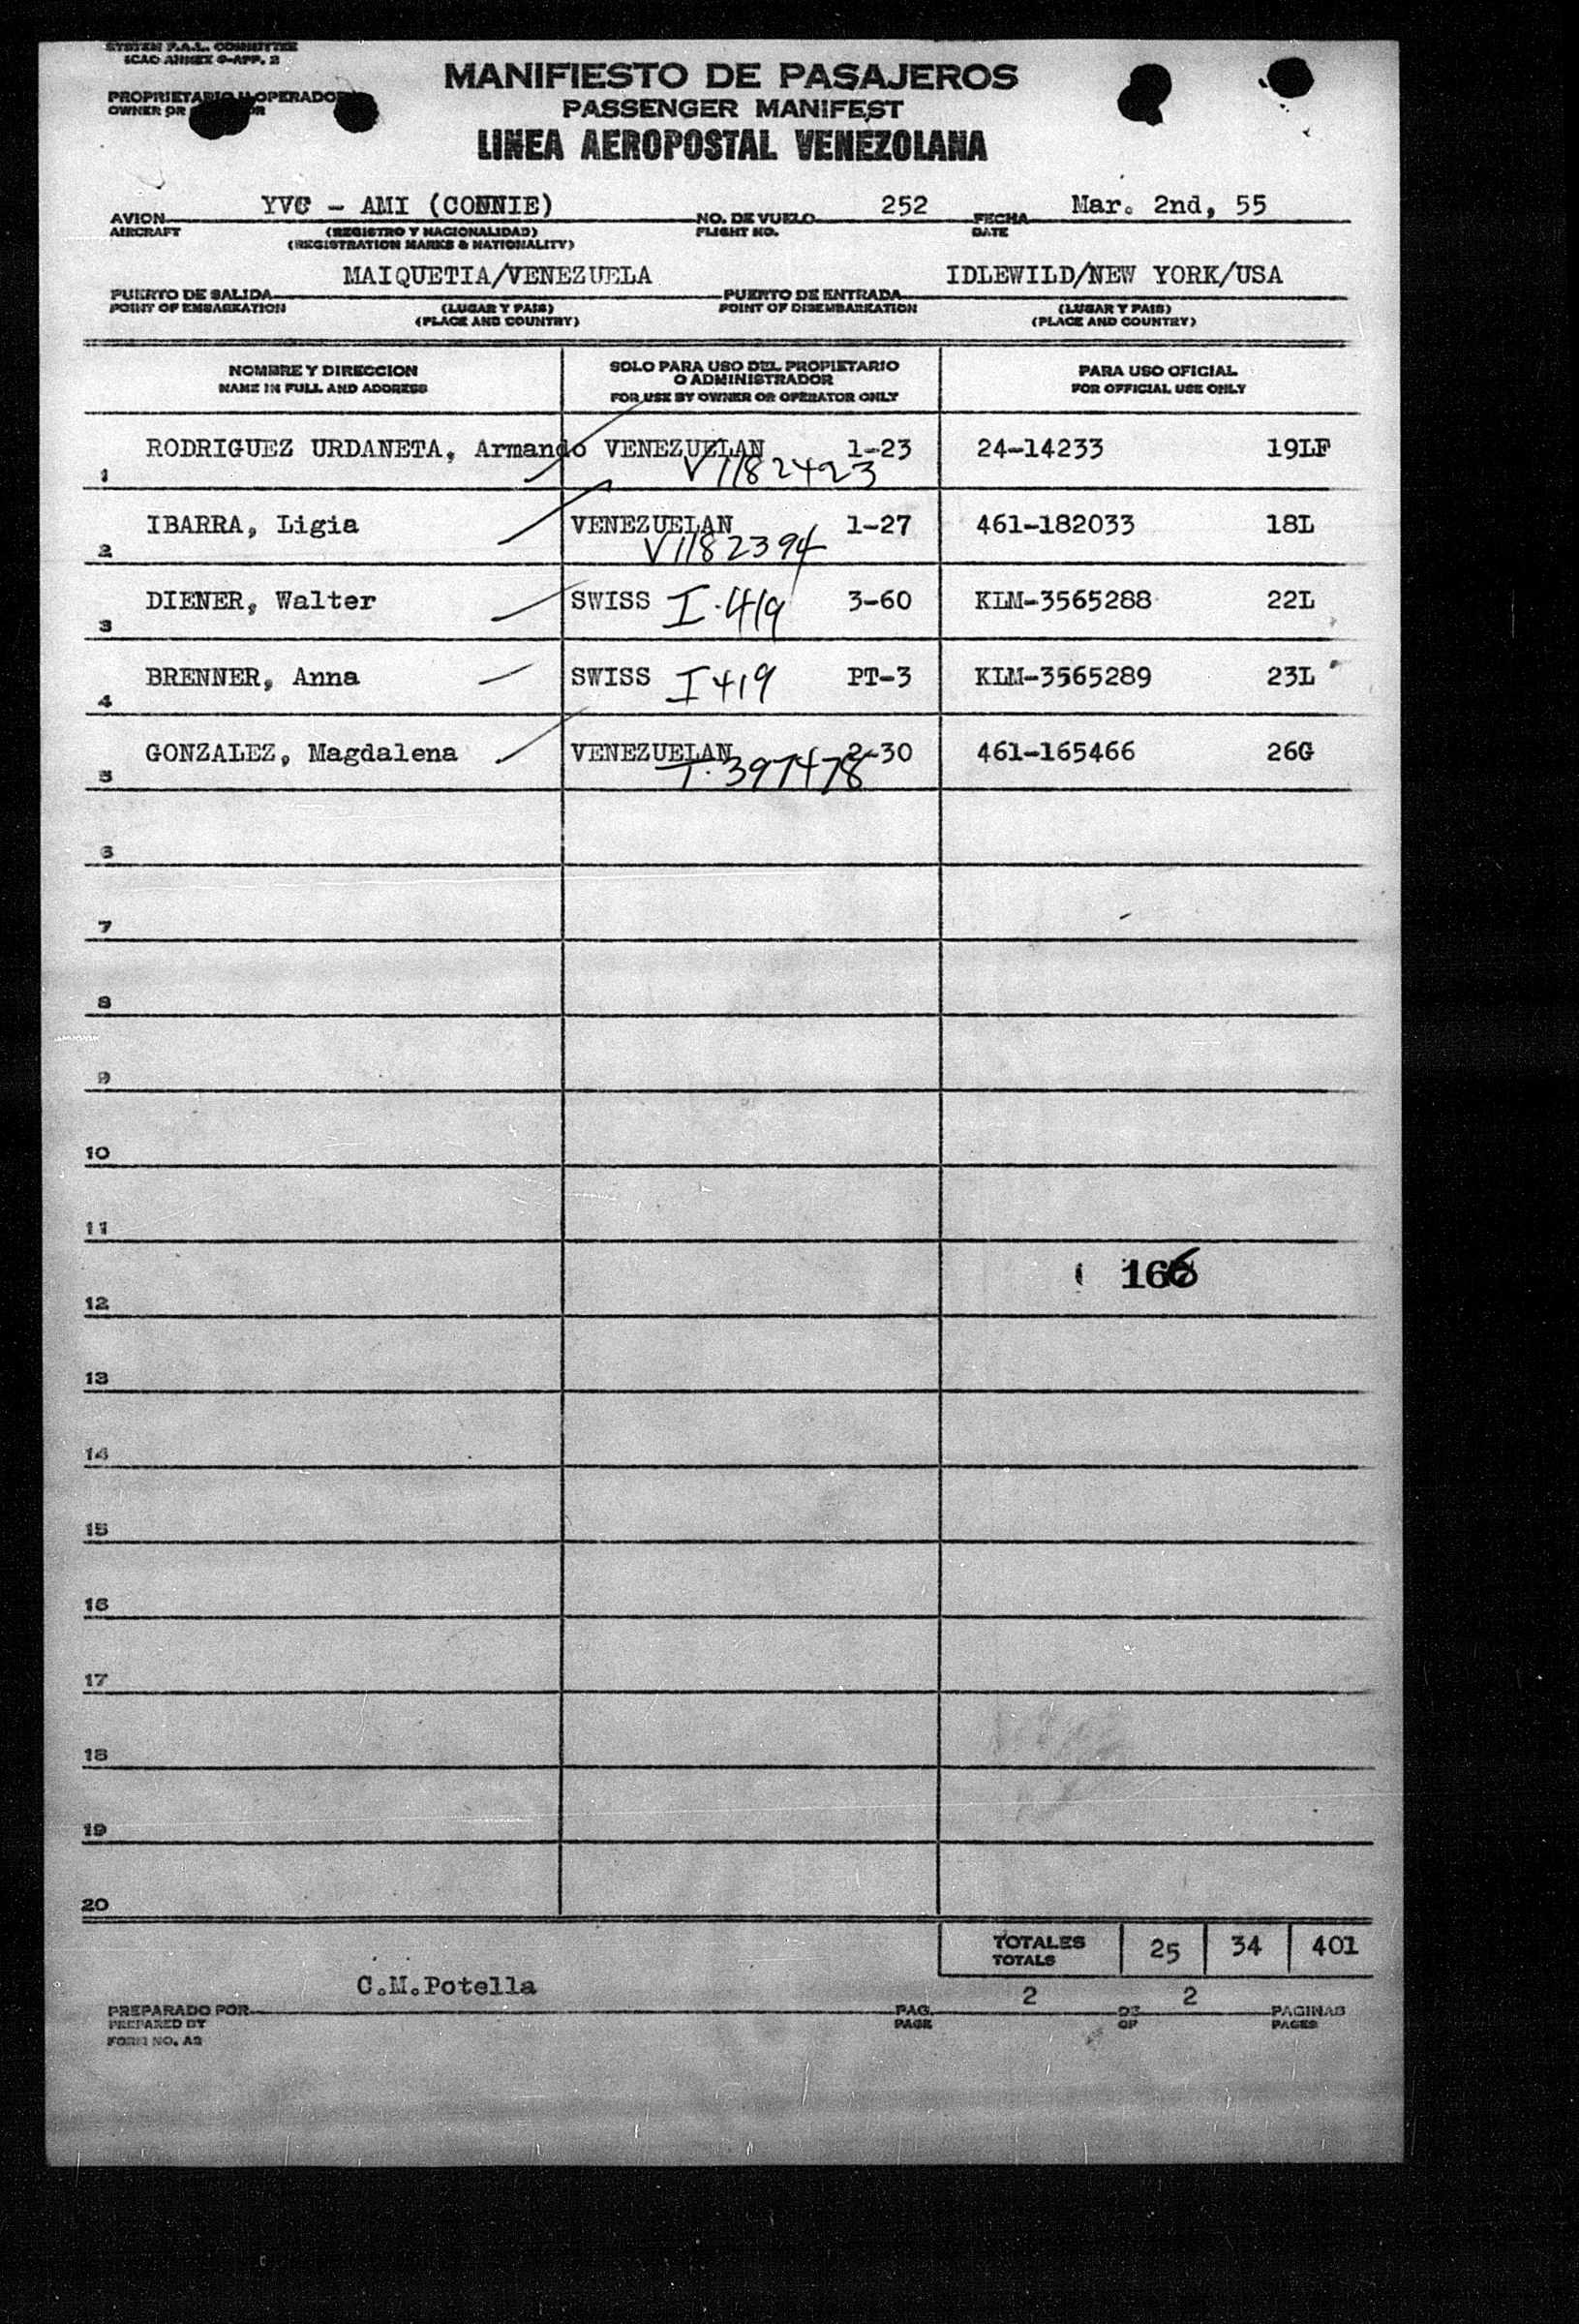 SYSTEM F.A.L. COMMITTEE
ICAO ANNEX 9-APP. 2
MANIFIESTO DE PASAJEROS
PROPRIETARIO U OPERADOR
OWNER OR
PASSENGER MANIFEST
LINEA AEROPOSTAL VENEZOLANA
YVC - AMI (CONNIE) 252 Mar. 2nd, 55
AVION NO. DE VUELO FECHA
AIRCRAFT (REGISTRO Y NACIONALIDAD) FLIGHT NO. DATE
(REGISTRATION MARKS & NATIONALITY)
MAIQUETIA/VENEZUELA IDLEWILD/NEW YORK/USA
PUERTO DE SALIDA PUERTO DE ENTRADA
POINT OF EMBARKATION (LUGAR Y PAIS) POINT OF DISEMBARKATION (LUGAR Y PAIS)
(PLACE AND COUNTRY) (PLACE AND COUNTRY)
NOMBRE Y DIRECCION SOLO PARA USO DEL PROPIETARIO PARA USO OFICIAL
O ADMINISTRADOR
NAME IN FULL AND ADDRESS FOR USE BY OWNER OR OPERATOR ONLY FOR OFFICIAL USE ONLY
RODRIGUEZ URDANETA, Armando VENEZUELAN 1-23 24-14233 19LF
1 V1182423
IBARRA, Ligia VENEZUELAN 1-27 461-182033 18L
2 V1182394
DIENER, Walter SWISS I-419 3-60 KLM-3565288 22L
3
BRENNER, Anna SWISS I 419 PT-3 KLM-3565289 23L
4
GONZALEZ, Magdalena VENEZUELAN 2-30 461-165466 26G
5 T. 397478
6
7
8
9
10
11
166
12
13
14
15
16
17
18
19
20
TOTALES 25 34 401
TOTALS
C.M.Potella 2 2
PREPARADO POR PAG. DE PAGINAS
PREPARED BY PAGE OF PAGES
FORM NO. A2